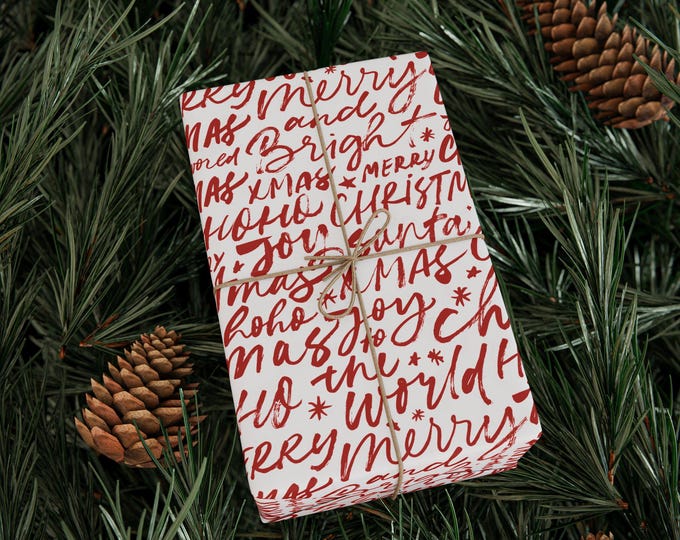 RRY Merry
MAS and
ored Bright
MAS XMAS MERRY C
HOHO CHRISTM
Joy Santa
mas XMAS C
hoho Joy
mas to Ch
the
HO World H
ERRY Merry
MAS and